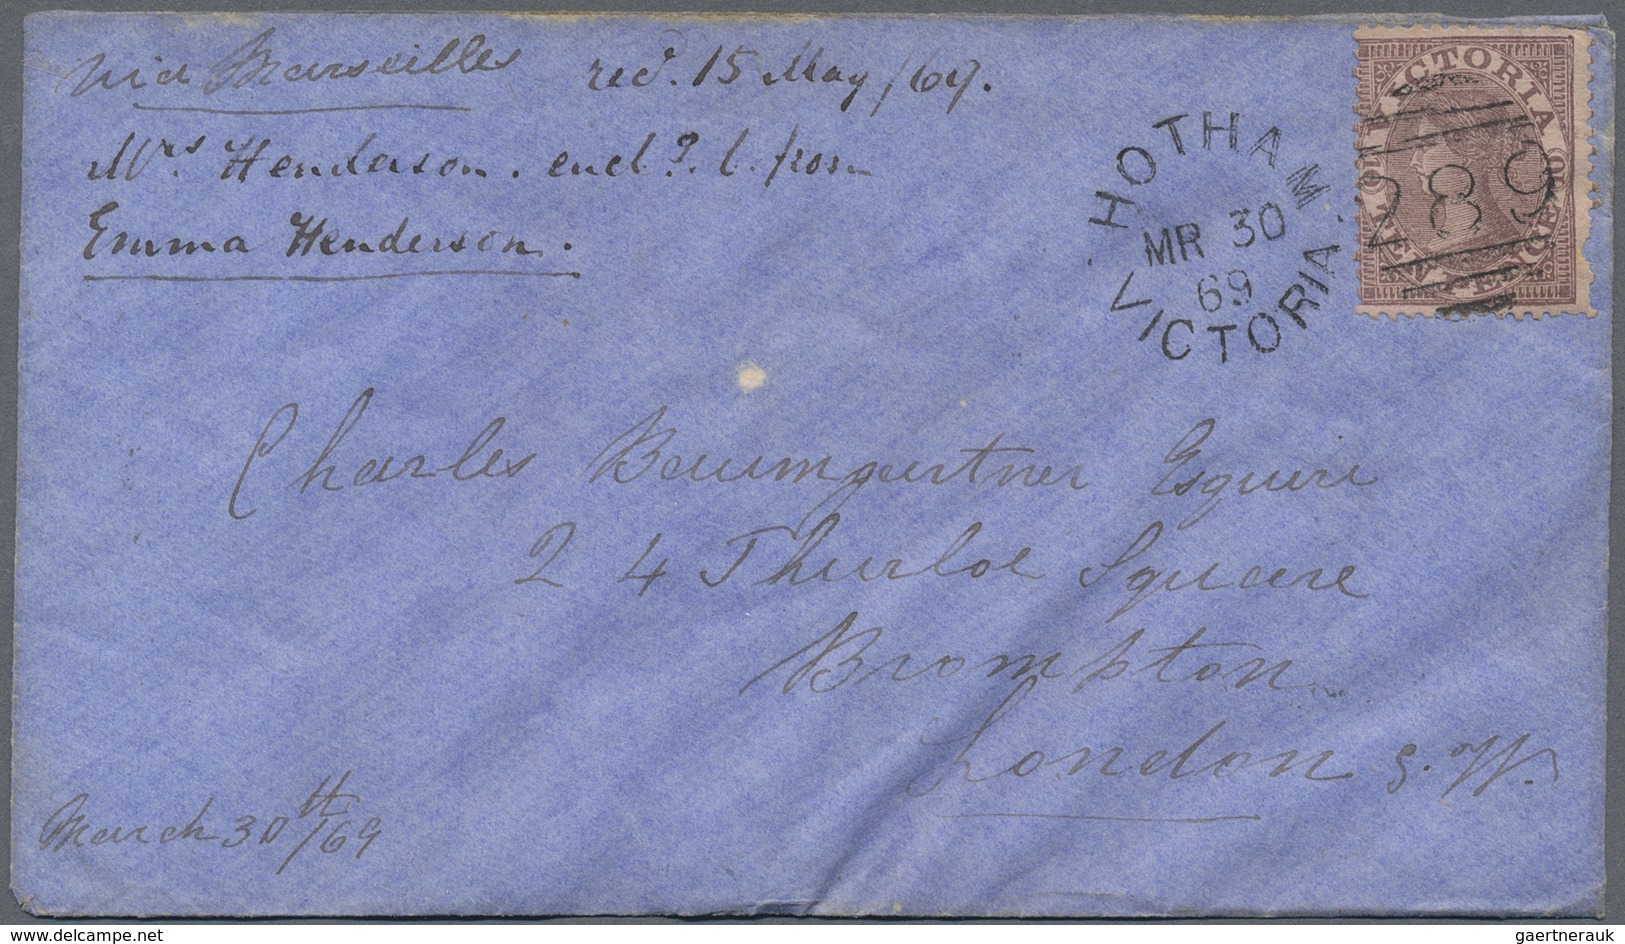 via Marseilles recd. 15 May /69.
Mrs Henderson. encl. l. from
Emma Henderson.
HOTHAM
MR 30
69
VICTORIA
VICTORIA
289
Charles Baumgartner Esquire
24 Thurloe Square
Brompton
London S.W.
March 30th/69
www.delcampe.net
gaertnerauk